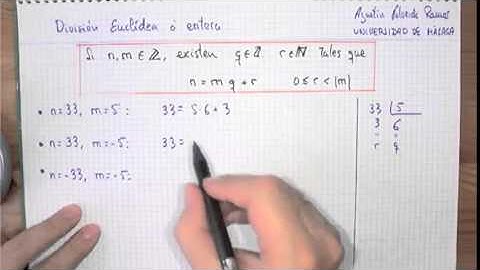 División Euclídea o entera
Agustín Valverde Ramos
UNIVERSIDAD DE MÁLAGA
Si n, m ∈ ℤ, existen q ∈ ℤ r ∈ ℕ tales que
n = m q + r 0 ≤ r < |m|
• n = 33, m = 5: 33 = 5·6 + 3
• n = 33, m = -5: 33 =
• n = -33, m = -5:
33 | 5
3 6
" "
r q